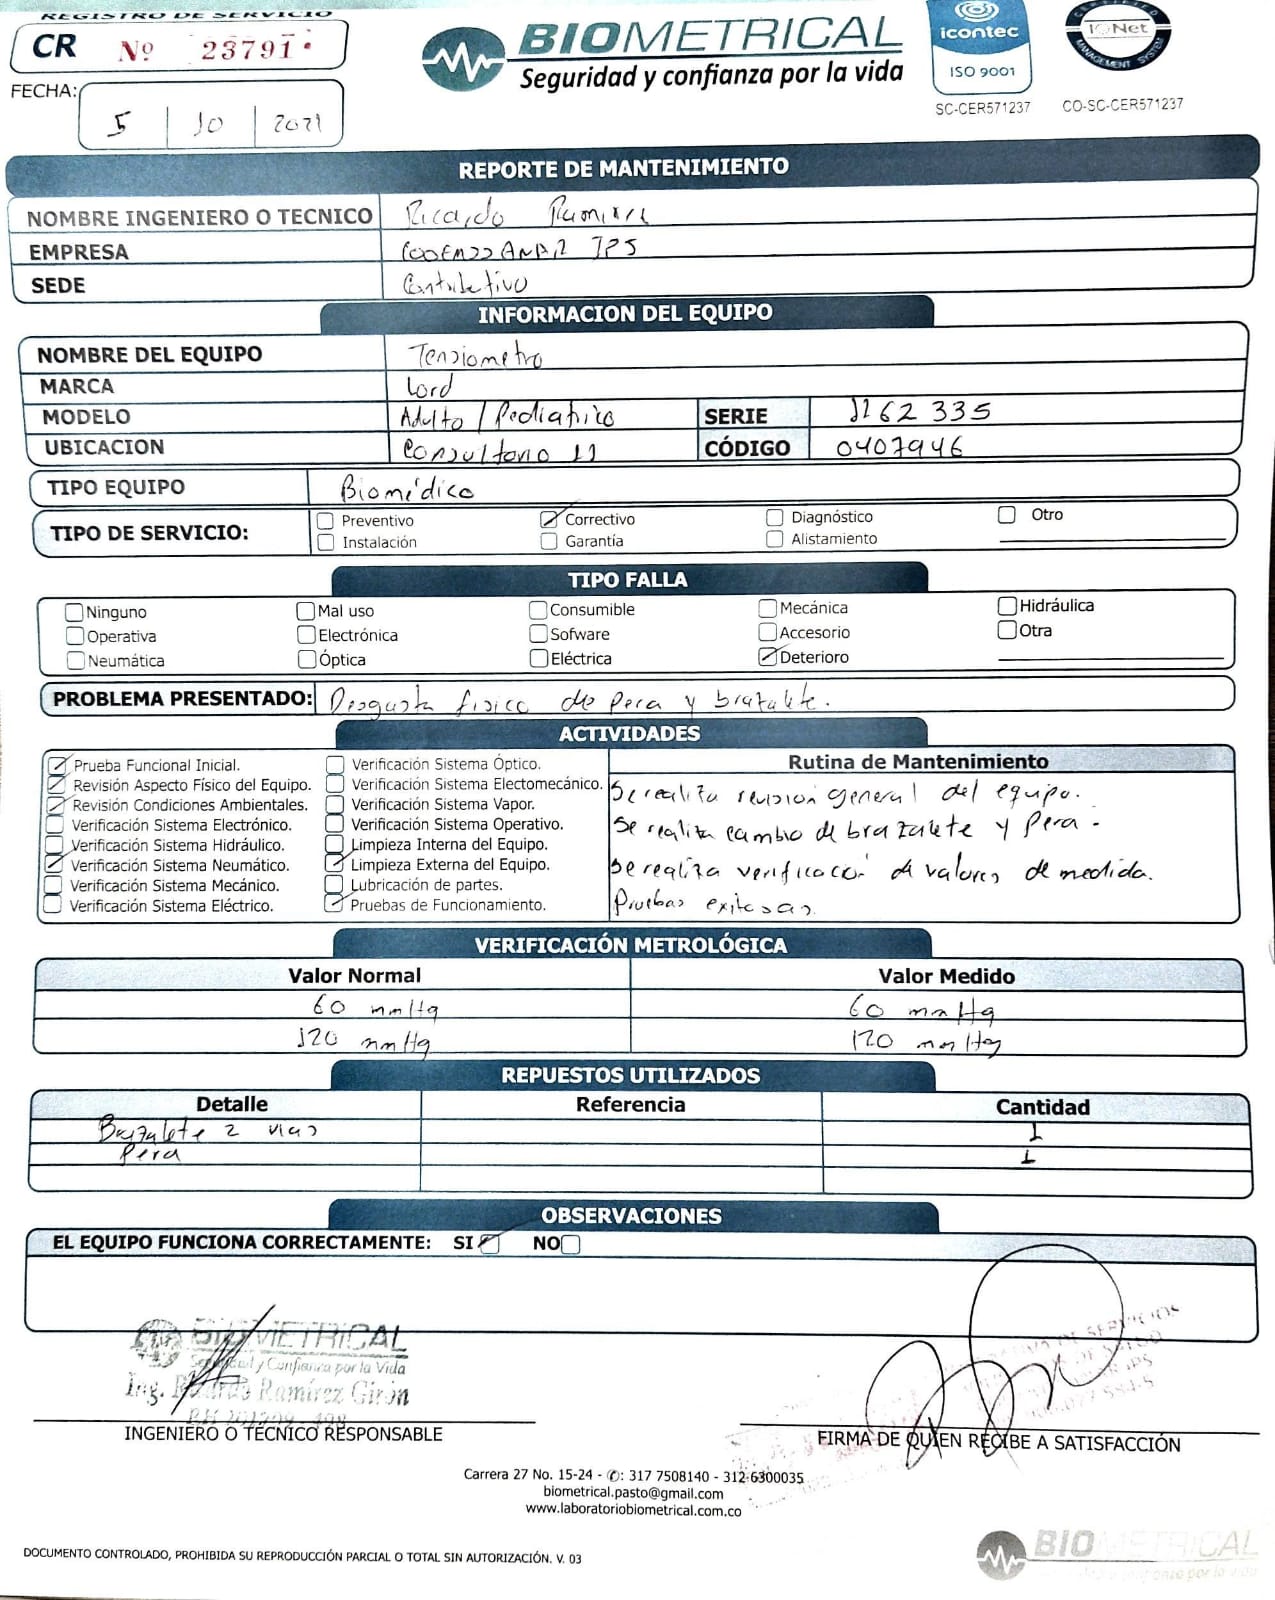 REGISTRO DE SERVICIO
CR Nº 23791
FECHA: 5 10 2021
BIOMETRICAL
Seguridad y confianza por la vida
icontec
ISO 9001
SC-CER571237
CERTIFIED
IQNet
MANAGEMENT SYSTEM
CO-SC-CER571237
REPORTE DE MANTENIMIENTO
NOMBRE INGENIERO O TECNICO Ricardo Ramirez
EMPRESA IPS
SEDE Contributivo
INFORMACION DEL EQUIPO
NOMBRE DEL EQUIPO Tensiometro
MARCA Lord
MODELO Adulto / Pediatrico SERIE 1162 335
UBICACION Consultorio 11 CÓDIGO 0407946
TIPO EQUIPO Biomédico
TIPO DE SERVICIO:
Preventivo Correctivo Diagnóstico Otro
Instalación Garantía Alistamiento
TIPO FALLA
Ninguno Mal uso Consumible Mecánica Hidráulica
Operativa Electrónica Sofware Accesorio Otra
Neumática Óptica Eléctrica Deterioro
PROBLEMA PRESENTADO: Desgaste fisico de pera y brazalete.
ACTIVIDADES
Prueba Funcional Inicial.
Revisión Aspecto Físico del Equipo.
Revisión Condiciones Ambientales.
Verificación Sistema Electrónico.
Verificación Sistema Hidráulico.
Verificación Sistema Neumático.
Verificación Sistema Mecánico.
Verificación Sistema Eléctrico.
Verificación Sistema Óptico.
Verificación Sistema Electomecánico.
Verificación Sistema Vapor.
Verificación Sistema Operativo.
Limpieza Interna del Equipo.
Limpieza Externa del Equipo.
Lubricación de partes.
Pruebas de Funcionamiento.
Rutina de Mantenimiento
Se realiza revisión general del equipo.
Se realiza cambio de brazalete y pera.
Se realiza verificación de valores de medida.
Pruebas exitosas.
VERIFICACIÓN METROLÓGICA
Valor Normal Valor Medido
60 mmHg 60 mmHg
120 mmHg 120 mmHg
REPUESTOS UTILIZADOS
Detalle Referencia Cantidad
Brazalete 2 vias 1
Pera 1
OBSERVACIONES
EL EQUIPO FUNCIONA CORRECTAMENTE: SI NO
BIOMETRICAL
Seguridad y Confianza por la Vida
Ing. Ricardo Ramírez Girón
INGENIERO O TECNICO RESPONSABLE
FIRMA DE QUIEN RECIBE A SATISFACCIÓN
Carrera 27 No. 15-24 - ✆: 317 7508140 - 312 6300035
biometrical.pasto@gmail.com
www.laboratoriobiometrical.com.co
DOCUMENTO CONTROLADO, PROHIBIDA SU REPRODUCCIÓN PARCIAL O TOTAL SIN AUTORIZACIÓN. V. 03
BIOMETRICAL